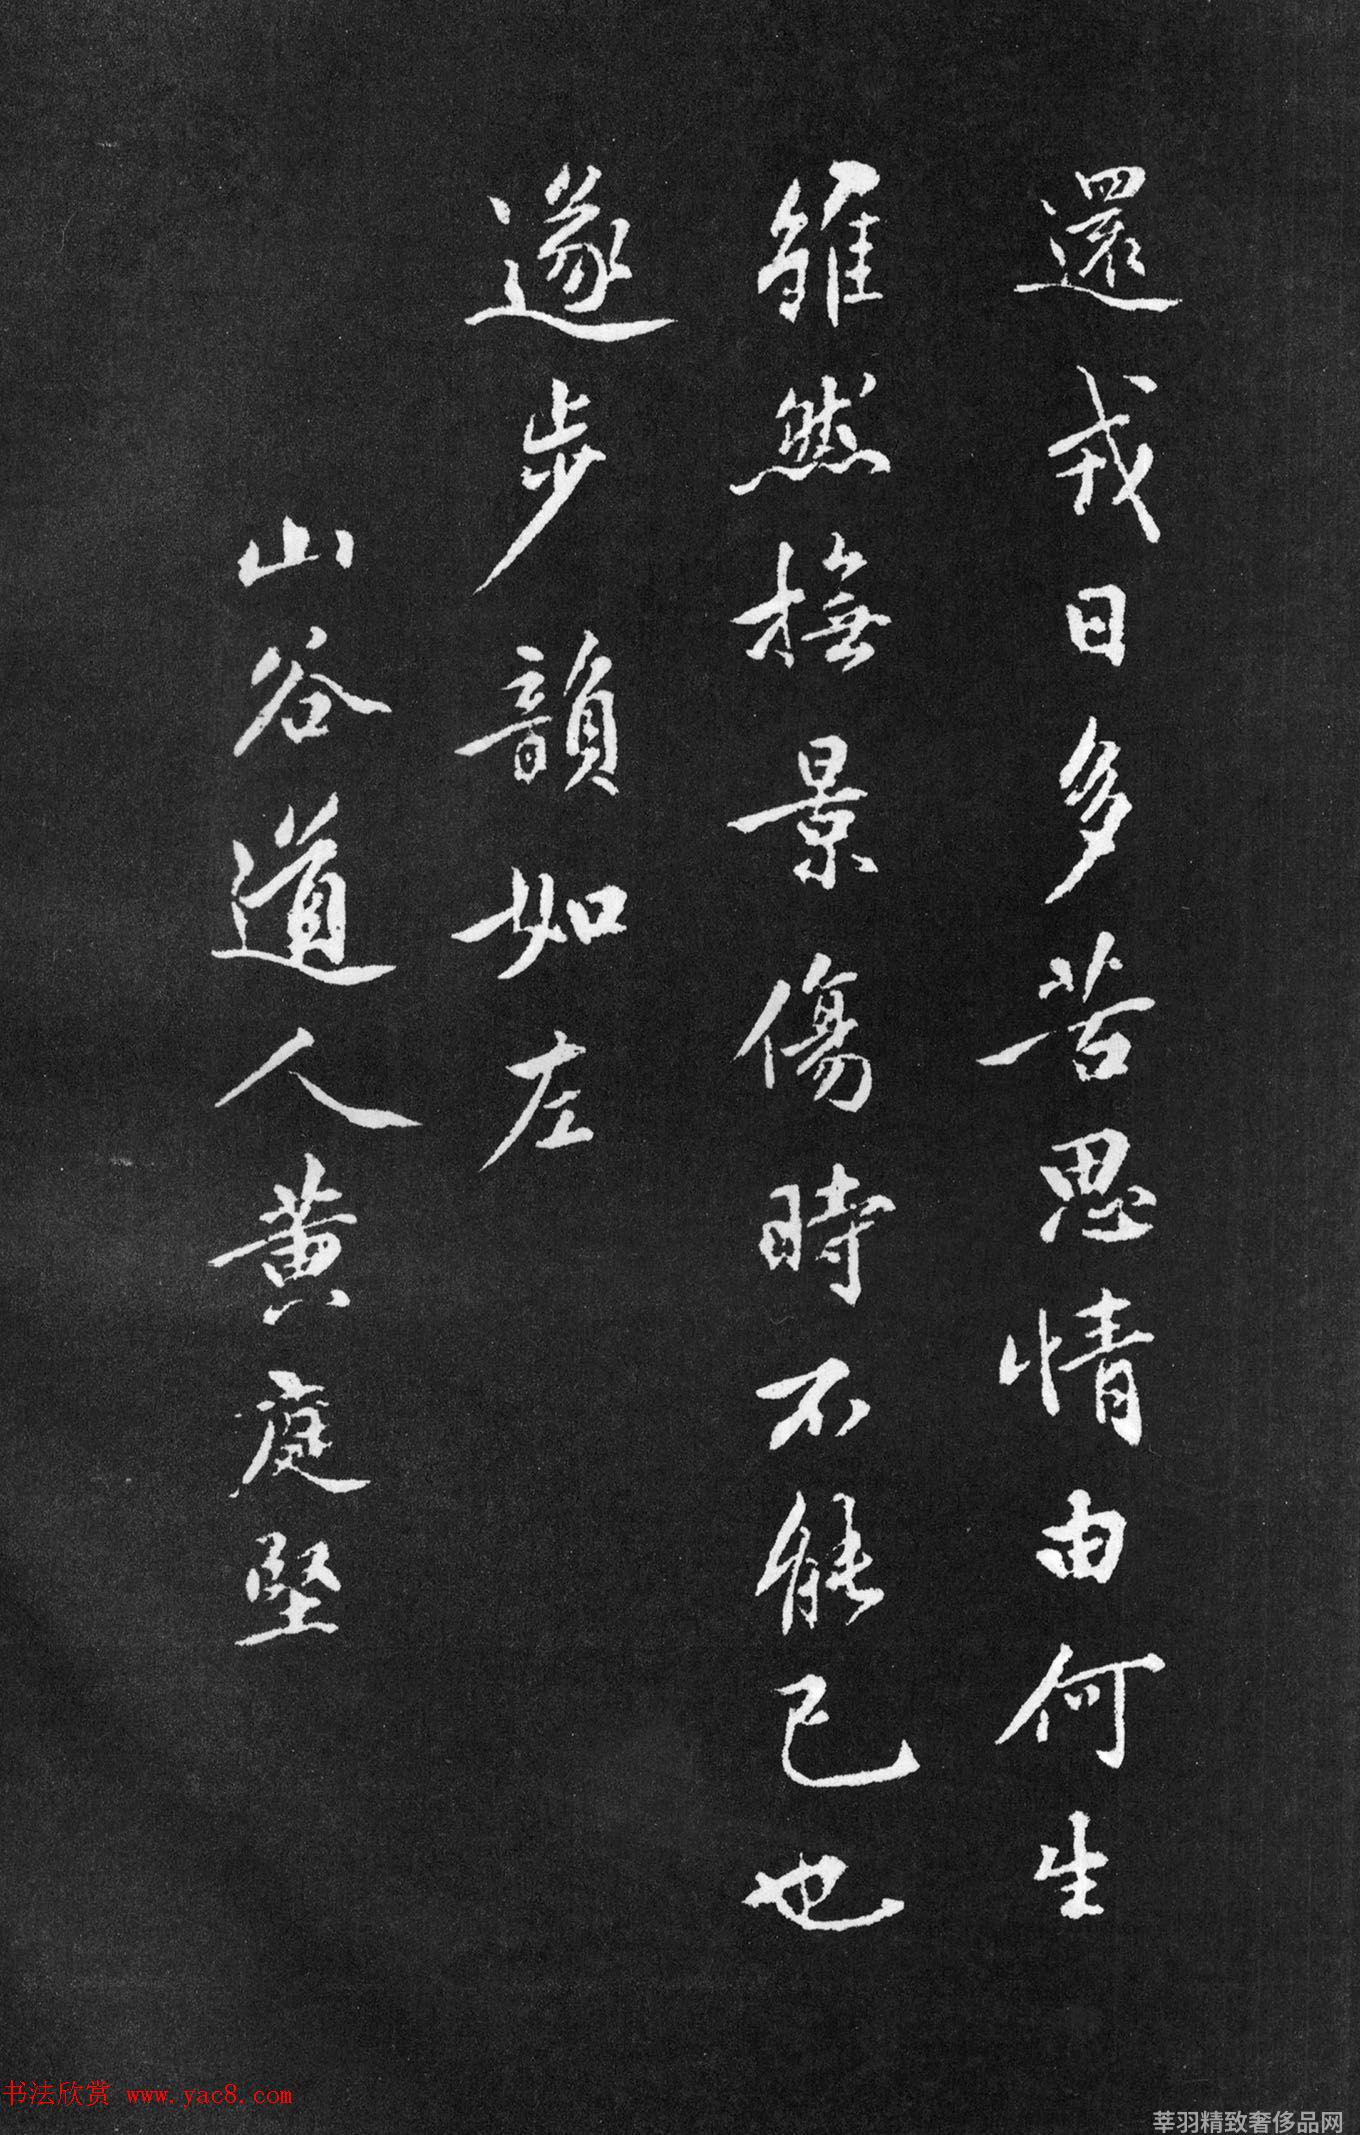 還戎日多苦思情由何生
雖然撫景傷時不能已也
遂步韻如左
山谷道人黃庭堅
书法欣赏 www.yac8.com
莘羽精致奢侈品网